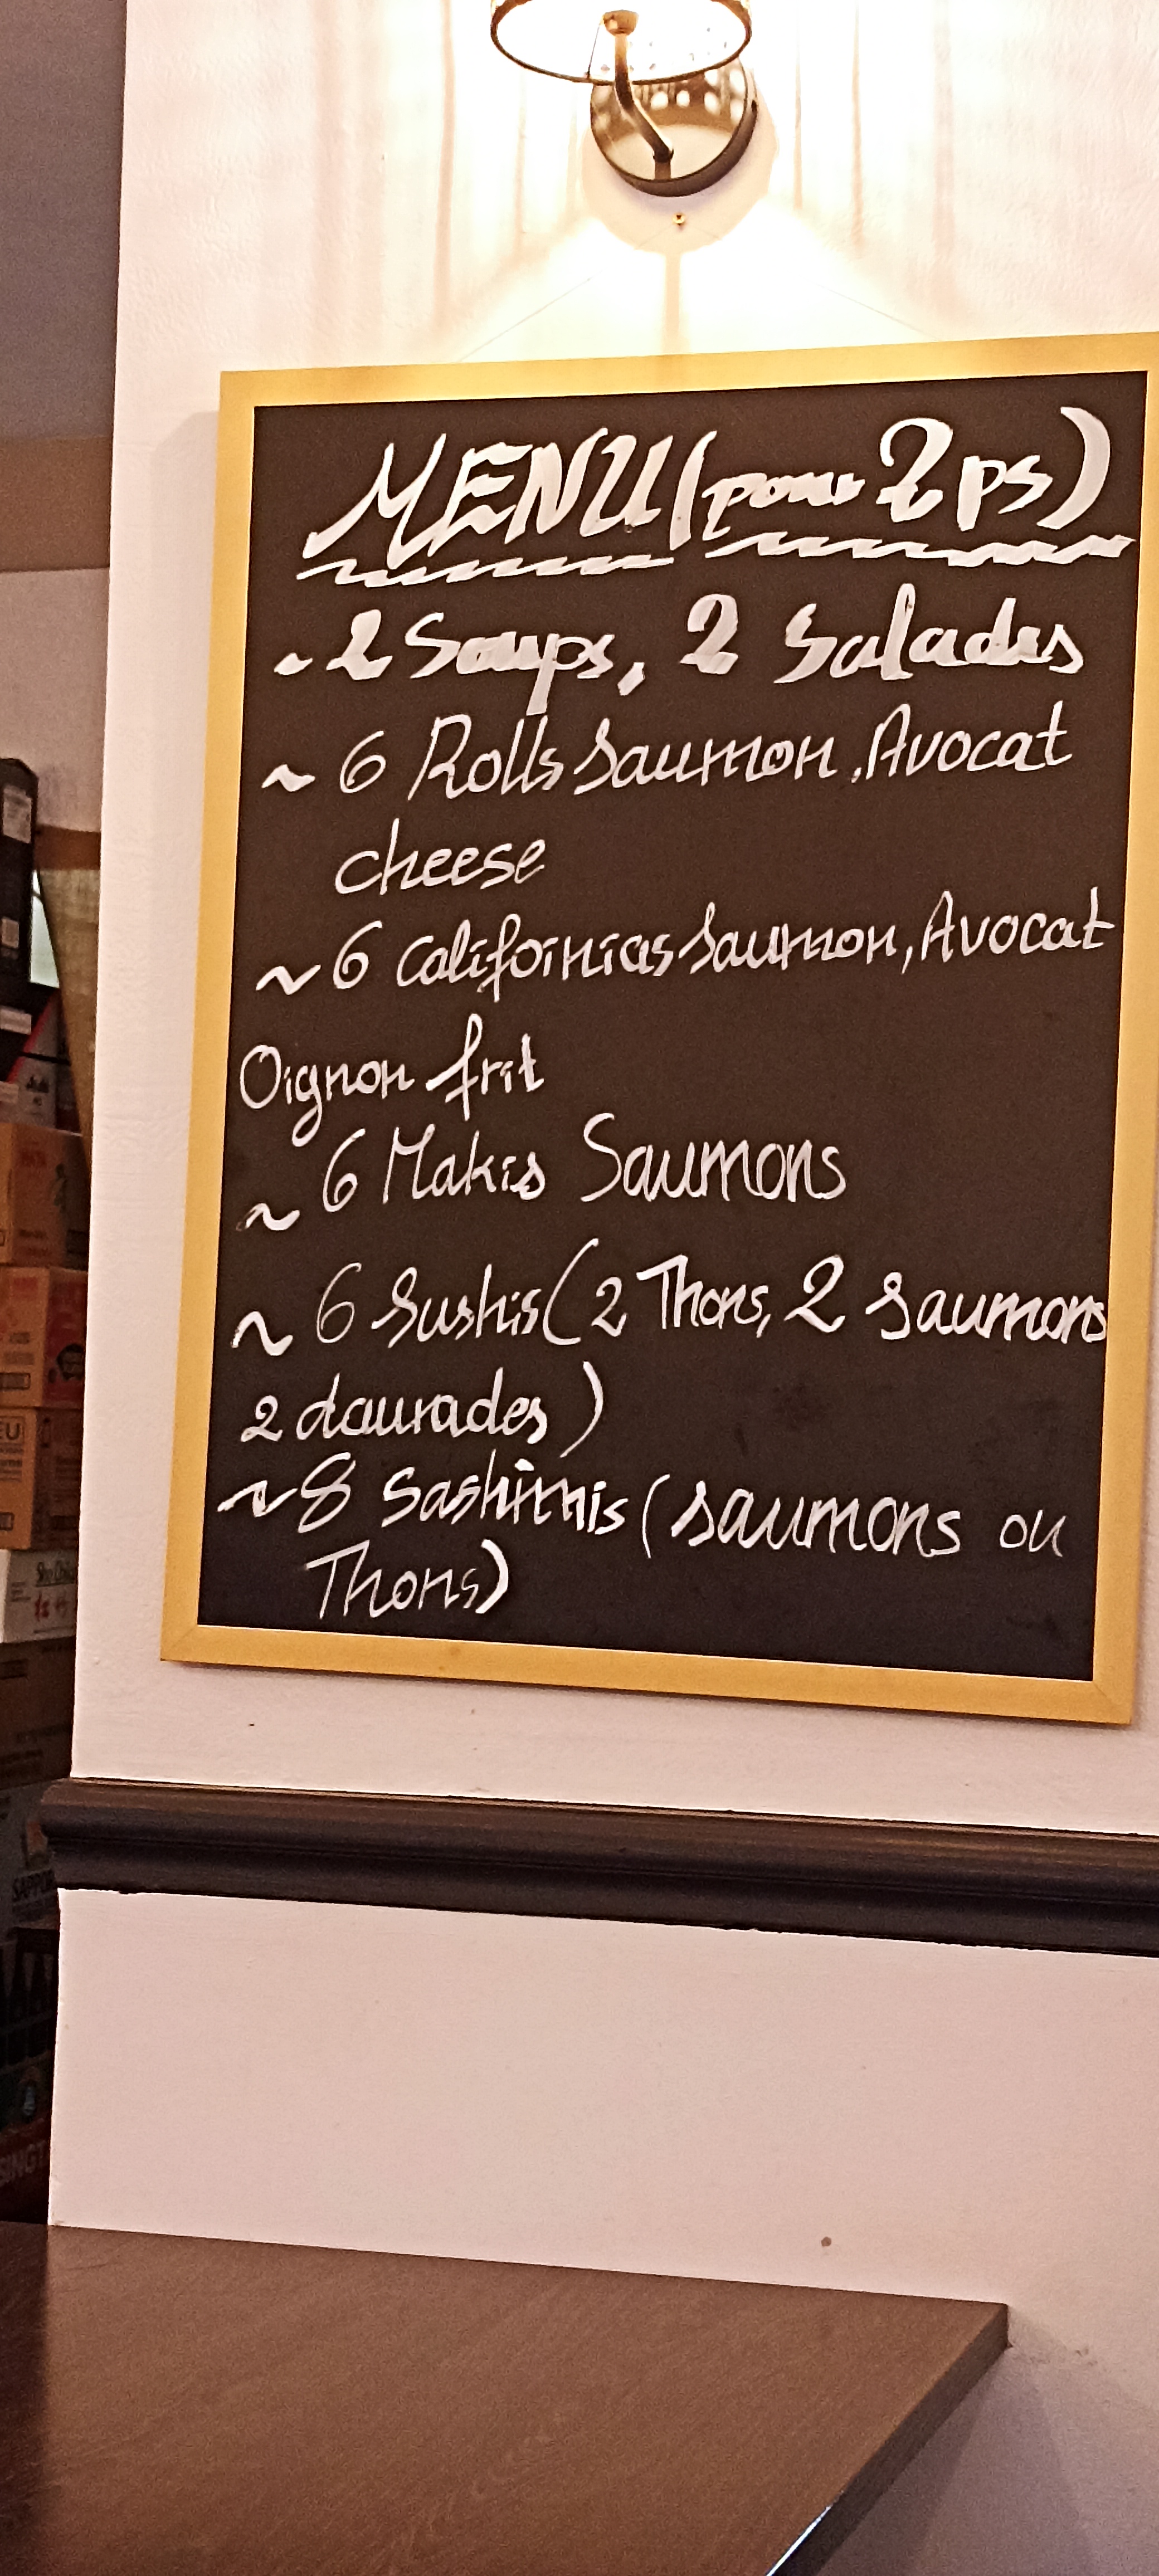 MENU (pour 2 ps)
~ 2 Soups, 2 Salades
~ 6 Rolls Saumon, Avocat
cheese
~ 6 Californias Saumon, Avocat
Oignon frit
~ 6 Makis Saumons
~ 6 Sushis (2 Thons, 2 Saumons
2 daurades)
~ 8 Sashimis (saumons ou
Thons)